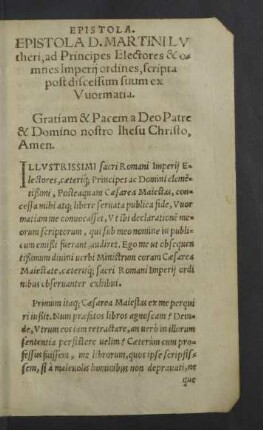 EPISTOLA.
EPISTOLA D. MARTINI LV
theri, ad Principes Electores & o⸗
mnes Imperij ordines, scripta
post discessum suum ex
Vuormatia.
Gratiam & Pacem a Deo Patre
& Domino nostro Ihesu Christo,
Amen.
ILLVSTRISSIMI sacri Romani Imperij E⸗
lectores, cæteriq; Principes ac Domini clemē⸗
tissimi, Posteaquam Cæsarea Maiestas, con⸗
cessa mihi atq; libere seruata publica fide, Vuor
matiam me conuocasset, Vt ibi declarationē me⸗
orum scriptorum, qui sub meo nomine in publi⸗
cum emissi fuerant, audiret. Ego me ut obsequen
tissimum diuini uerbi Ministrum coram Cæsarea
Maiestate, cæterisq; sacri Romani Imperij ordi
nibus obseruanter exhibui.
Primum itaq; Cæsarea Maiestas ex me perqui
ri iussit. Num præfatos libros agnoscam? Dein⸗
de, Vtrum eos iam retractare, an uerò in illorum
sententia persistere uelim? Cæterum cum pro⸗
fessus fuissem, me librorum, quos ipse scripsis⸗
sem, si à maleuolis hominibus non deprauati, ne
que